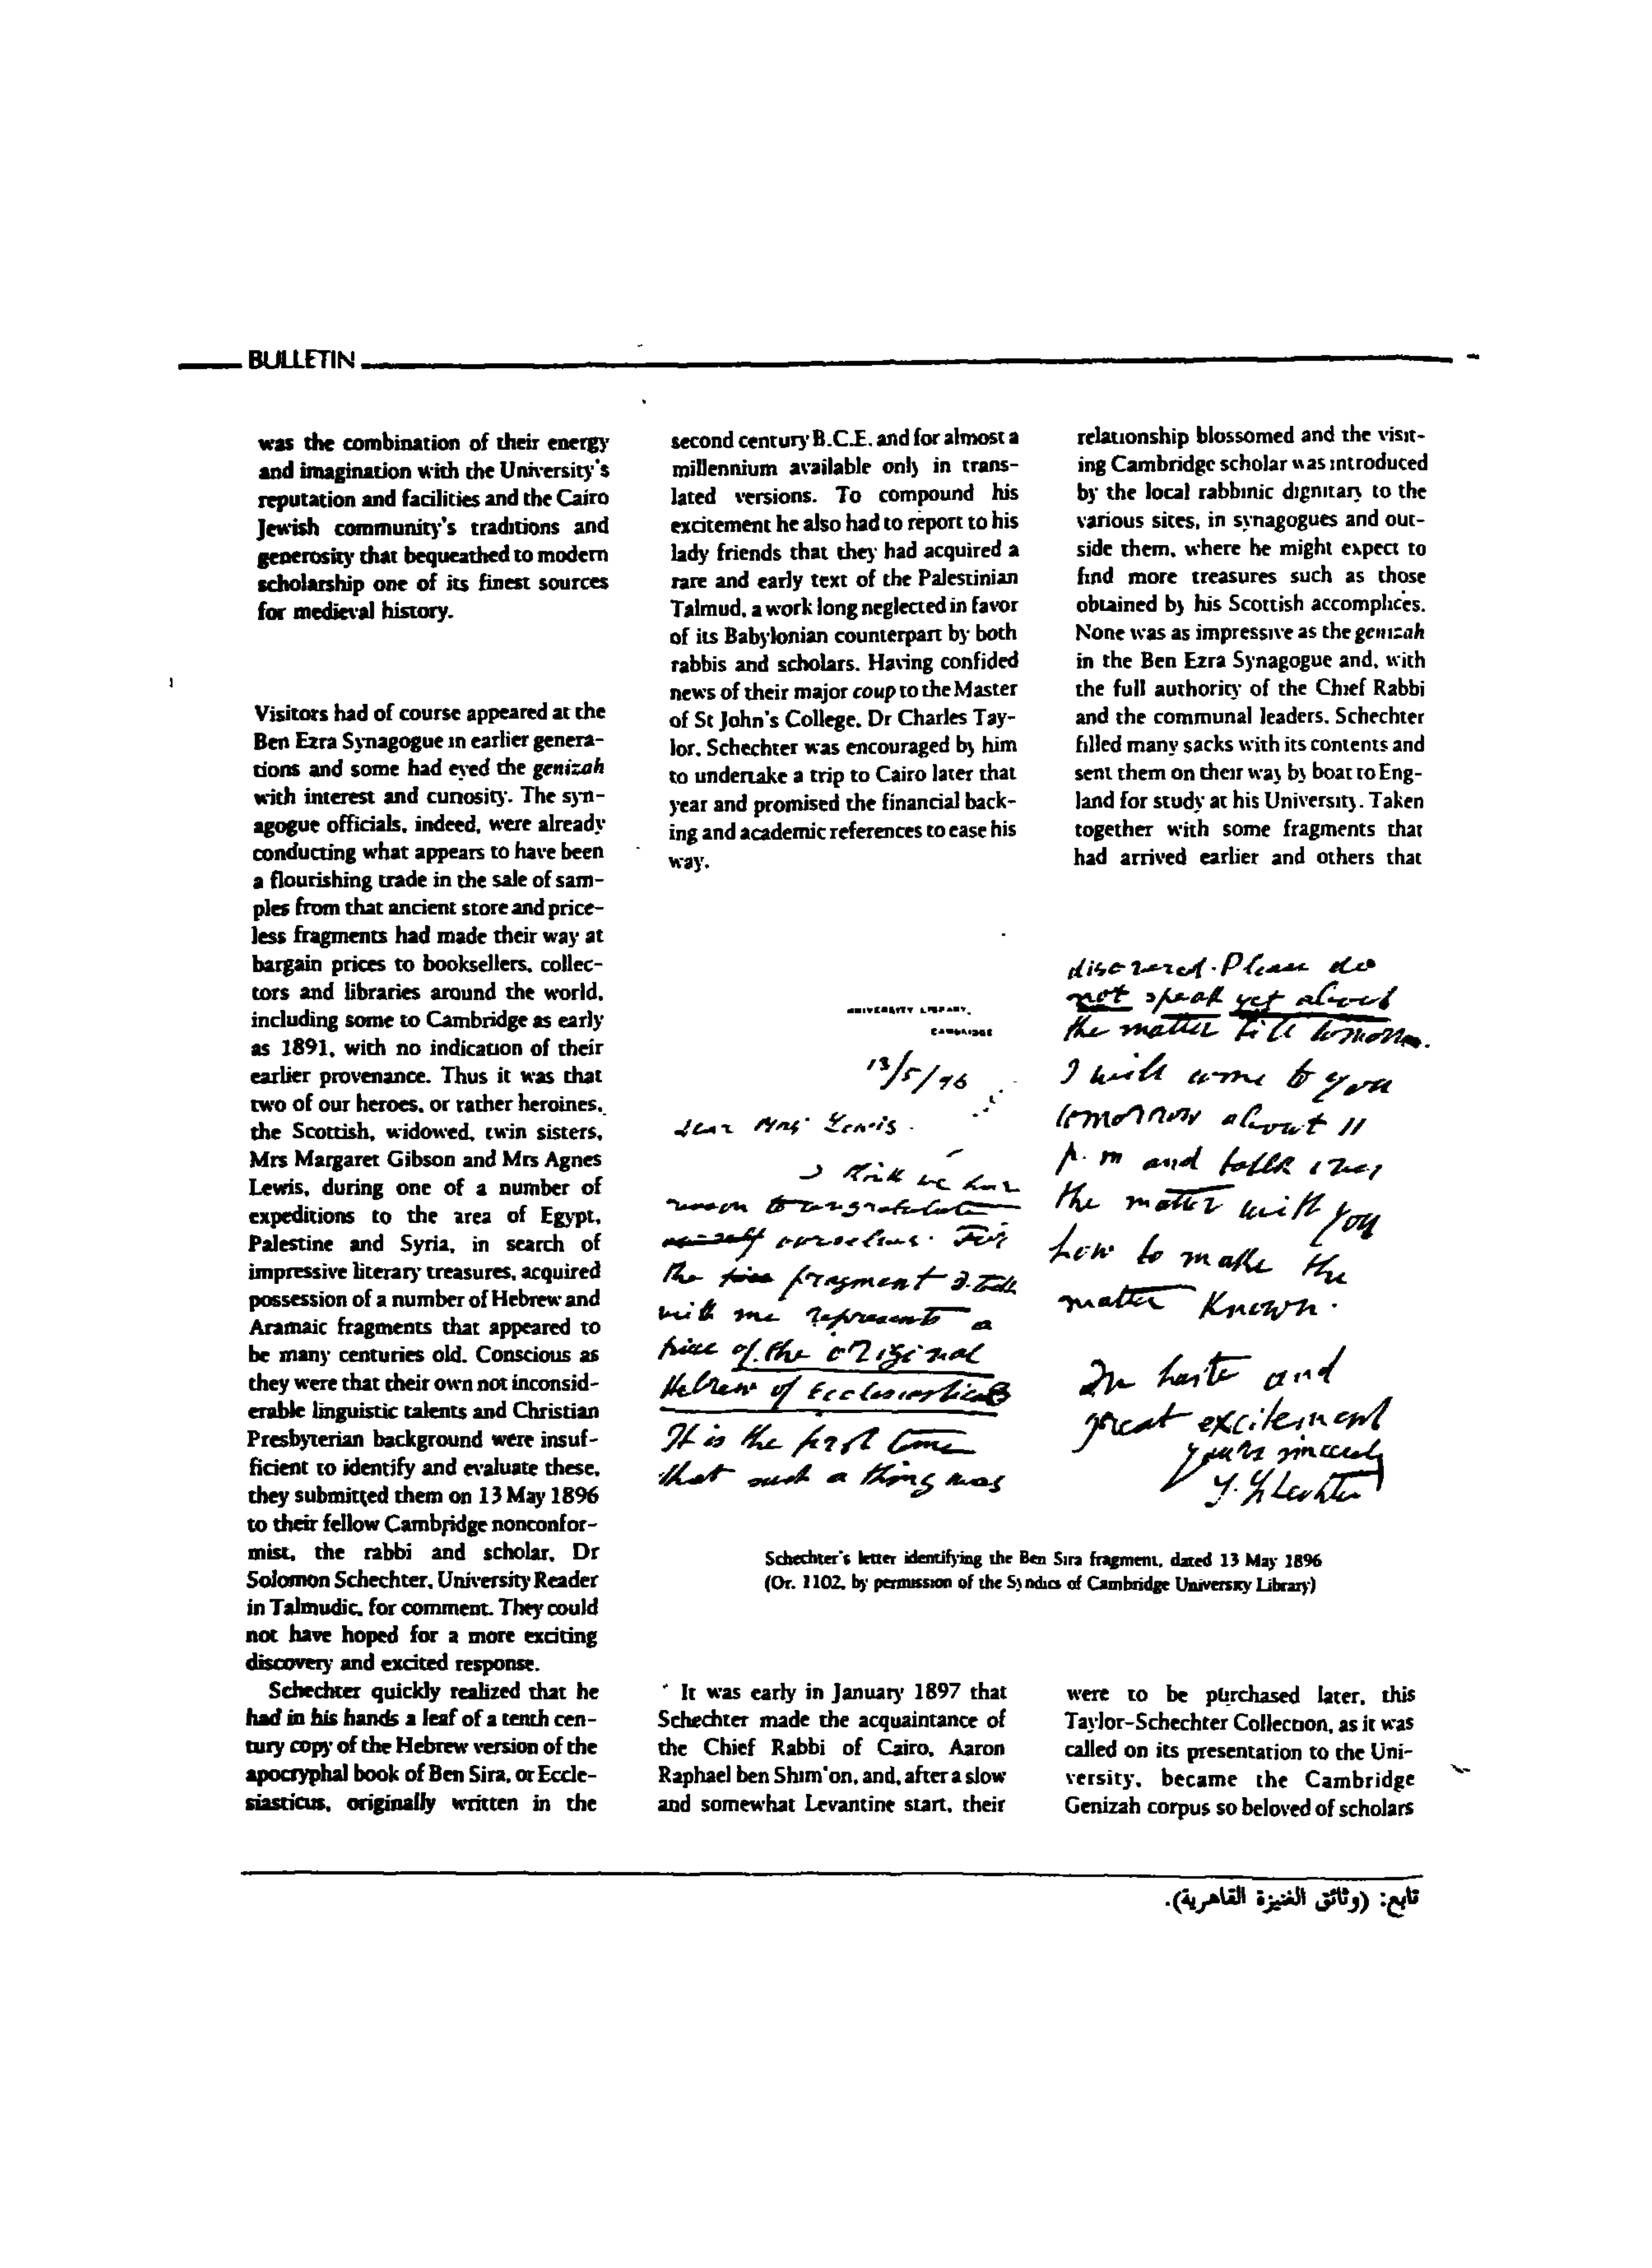 BULLETIN
was the combination of their energy
and imagination with the University's
reputation and facilities and the Cairo
Jewish community's traditions and
generosity that bequeathed to modern
scholarship one of its finest sources
for medieval history.
Visitors had of course appeared at the
Ben Ezra Synagogue in earlier genera-
tions and some had eyed the genizah
with interest and curiosity. The syn-
agogue officials, indeed, were already
conducting what appears to have been
a flourishing trade in the sale of sam-
ples from that ancient store and price-
less fragments had made their way at
bargain prices to booksellers, collec-
tors and libraries around the world,
including some to Cambridge as early
as 1891, with no indication of their
earlier provenance. Thus it was that
two of our heroes, or rather heroines,
the Scottish, widowed, twin sisters,
Mrs Margaret Gibson and Mrs Agnes
Lewis, during one of a number of
expeditions to the area of Egypt,
Palestine and Syria, in search of
impressive literary treasures, acquired
possession of a number of Hebrew and
Aramaic fragments that appeared to
be many centuries old. Conscious as
they were that their own not inconsid-
erable linguistic talents and Christian
Presbyterian background were insuf-
ficient to identify and evaluate these,
they submitted them on 13 May 1896
to their fellow Cambridge nonconfor-
mist, the rabbi and scholar, Dr
Solomon Schechter, University Reader
in Talmudic, for comment. They could
not have hoped for a more exciting
discovery and excited response.
Schechter quickly realized that he
had in his hands a leaf of a tenth cen-
tury copy of the Hebrew version of the
apocryphal book of Ben Sira, or Eccle-
siasticus, originally written in the
second century B.C.E. and for almost a
millennium available only in trans-
lated versions. To compound his
excitement he also had to report to his
lady friends that they had acquired a
rare and early text of the Palestinian
Talmud, a work long neglected in favor
of its Babylonian counterpart by both
rabbis and scholars. Having confided
news of their major coup to the Master
of St John's College, Dr Charles Tay-
lor, Schechter was encouraged by him
to undertake a trip to Cairo later that
year and promised the financial back-
ing and academic references to ease his
way.
UNIVERSITY LIBRARY,
CAMBRIDGE
13/5/96
Dear Mrs Lewis.
I think we have
reason to congratulate
ourselves. For
the fragment I took
with me represents a
piece of the original
Hebrew of Ecclesiasticus
It is the first time
that such a thing was
discovered. Please do
not speak yet about
the matter till tomorrow.
I will come to you
tomorrow about 11
p.m and talk over
the matter with you
how to make the
matter known.
In haste and
great excitement
yours sincerely
S. Schechter
Schechter's letter identifying the Ben Sira fragment, dated 13 May 1896
(Or. 1102, by permission of the Syndics of Cambridge University Library)
It was early in January 1897 that
Schechter made the acquaintance of
the Chief Rabbi of Cairo, Aaron
Raphael ben Shim'on, and, after a slow
and somewhat Levantine start, their
relationship blossomed and the visit-
ing Cambridge scholar was introduced
by the local rabbinic dignitary to the
various sites, in synagogues and out-
side them, where he might expect to
find more treasures such as those
obtained by his Scottish accomplices.
None was as impressive as the genizah
in the Ben Ezra Synagogue and, with
the full authority of the Chief Rabbi
and the communal leaders, Schechter
filled many sacks with its contents and
sent them on their way by boat to Eng-
land for study at his University. Taken
together with some fragments that
had arrived earlier and others that
were to be purchased later, this
Taylor-Schechter Collection, as it was
called on its presentation to the Uni-
versity, became the Cambridge
Genizah corpus so beloved of scholars
تابع: (وثائق الغنيزة القاهرية).